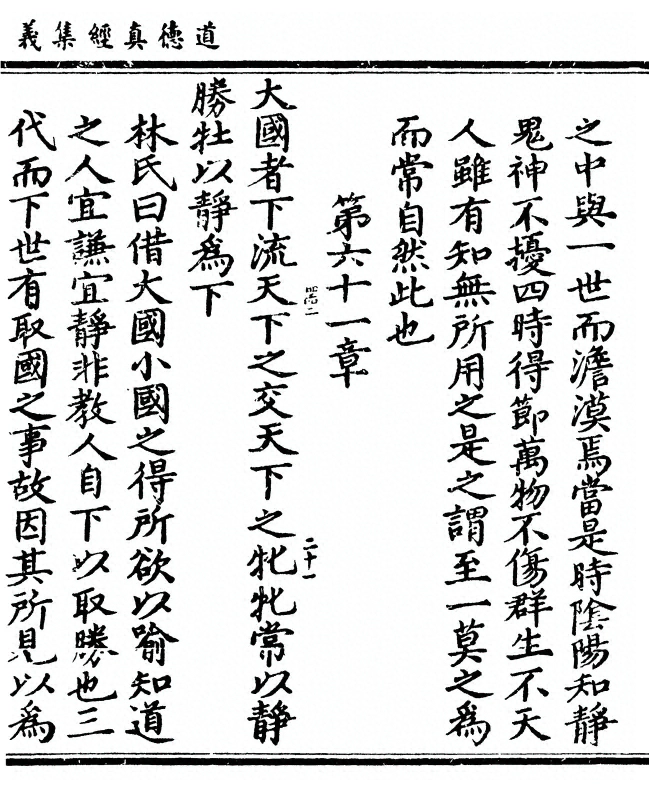 道德真經集義
之中與一世而澹漠焉當是時陰陽和靜
鬼神不擾四時得節萬物不傷群生不夭
人雖有知無所用之是之謂至一莫之爲
而常自然此也
第六十一章
大國者下流天下之交天下之牝牝常以靜
二十一
勝牡以靜爲下
林氏曰借大國小國之得所欲以喻知道
之人宜謙宜靜非教人自下以取勝也三
代而下世有取國之事故因其所見以爲